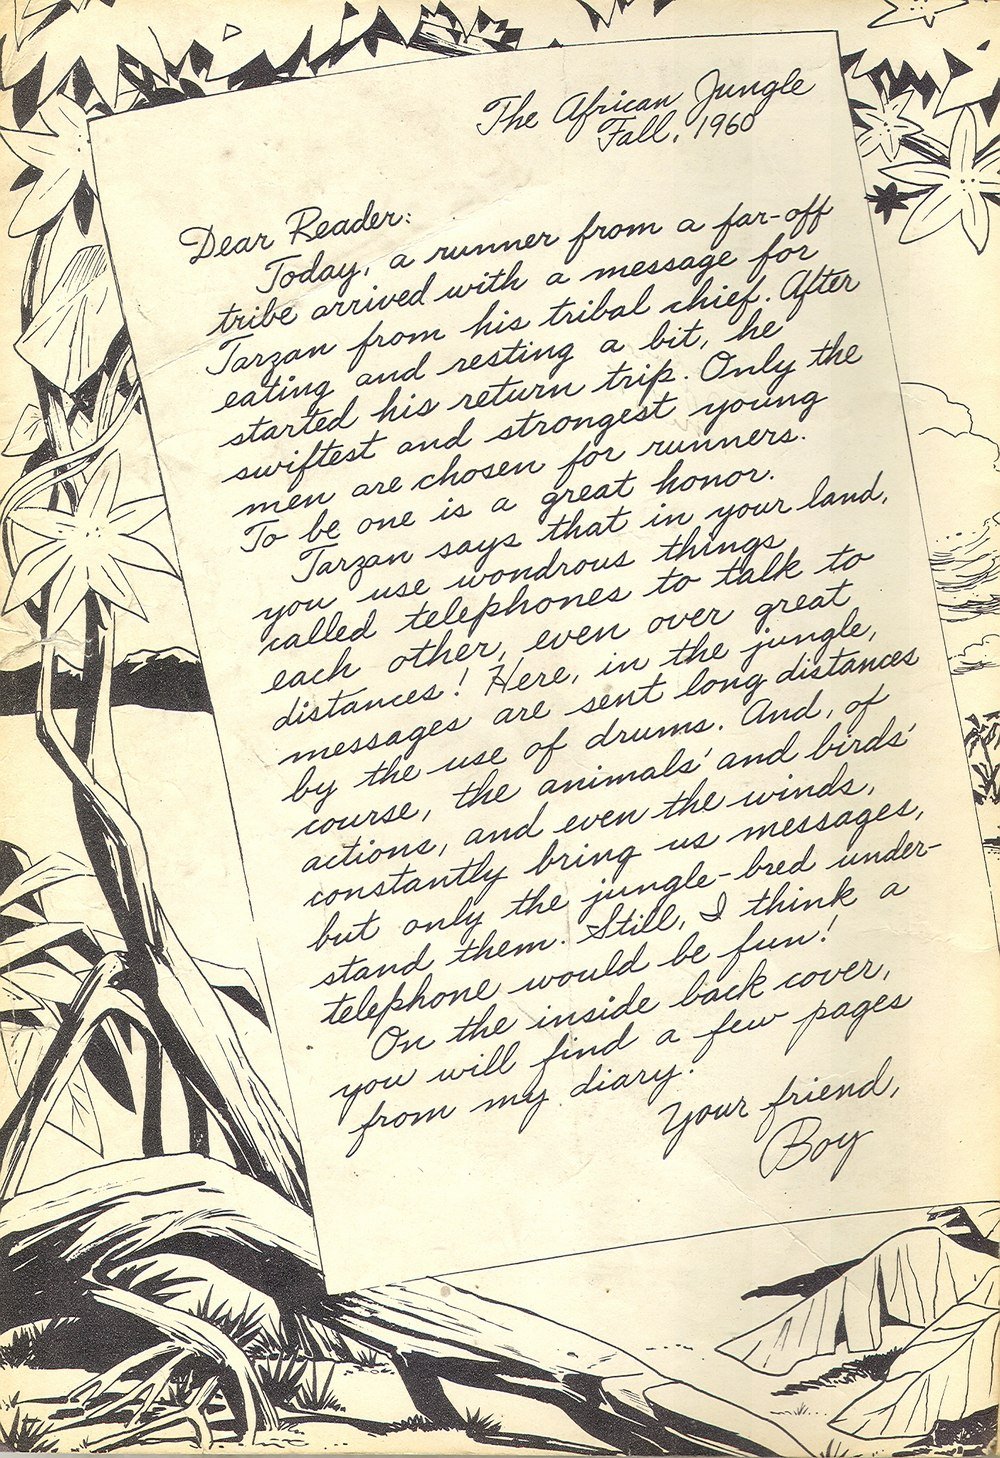 The African Jungle
Fall, 1960
Dear Reader:
Today, a runner from a far-off
tribe arrived with a message for
Tarzan from his tribal chief. After
eating and resting a bit, he
started his return trip. Only the
swiftest and strongest young
men are chosen for runners.
To be one is a great honor.
Tarzan says that in your land,
you use wondrous things
called telephones to talk to
each other, even over great
distances! Here, in the jungle,
messages are sent long distances
by the use of drums. And, of
course, the animals' and birds'
actions, and even the winds,
constantly bring us messages,
but only the jungle-bred under-
stand them. Still, I think a
telephone would be fun!
On the inside back cover,
you will find a few pages
from my diary!
Your friend,
Boy